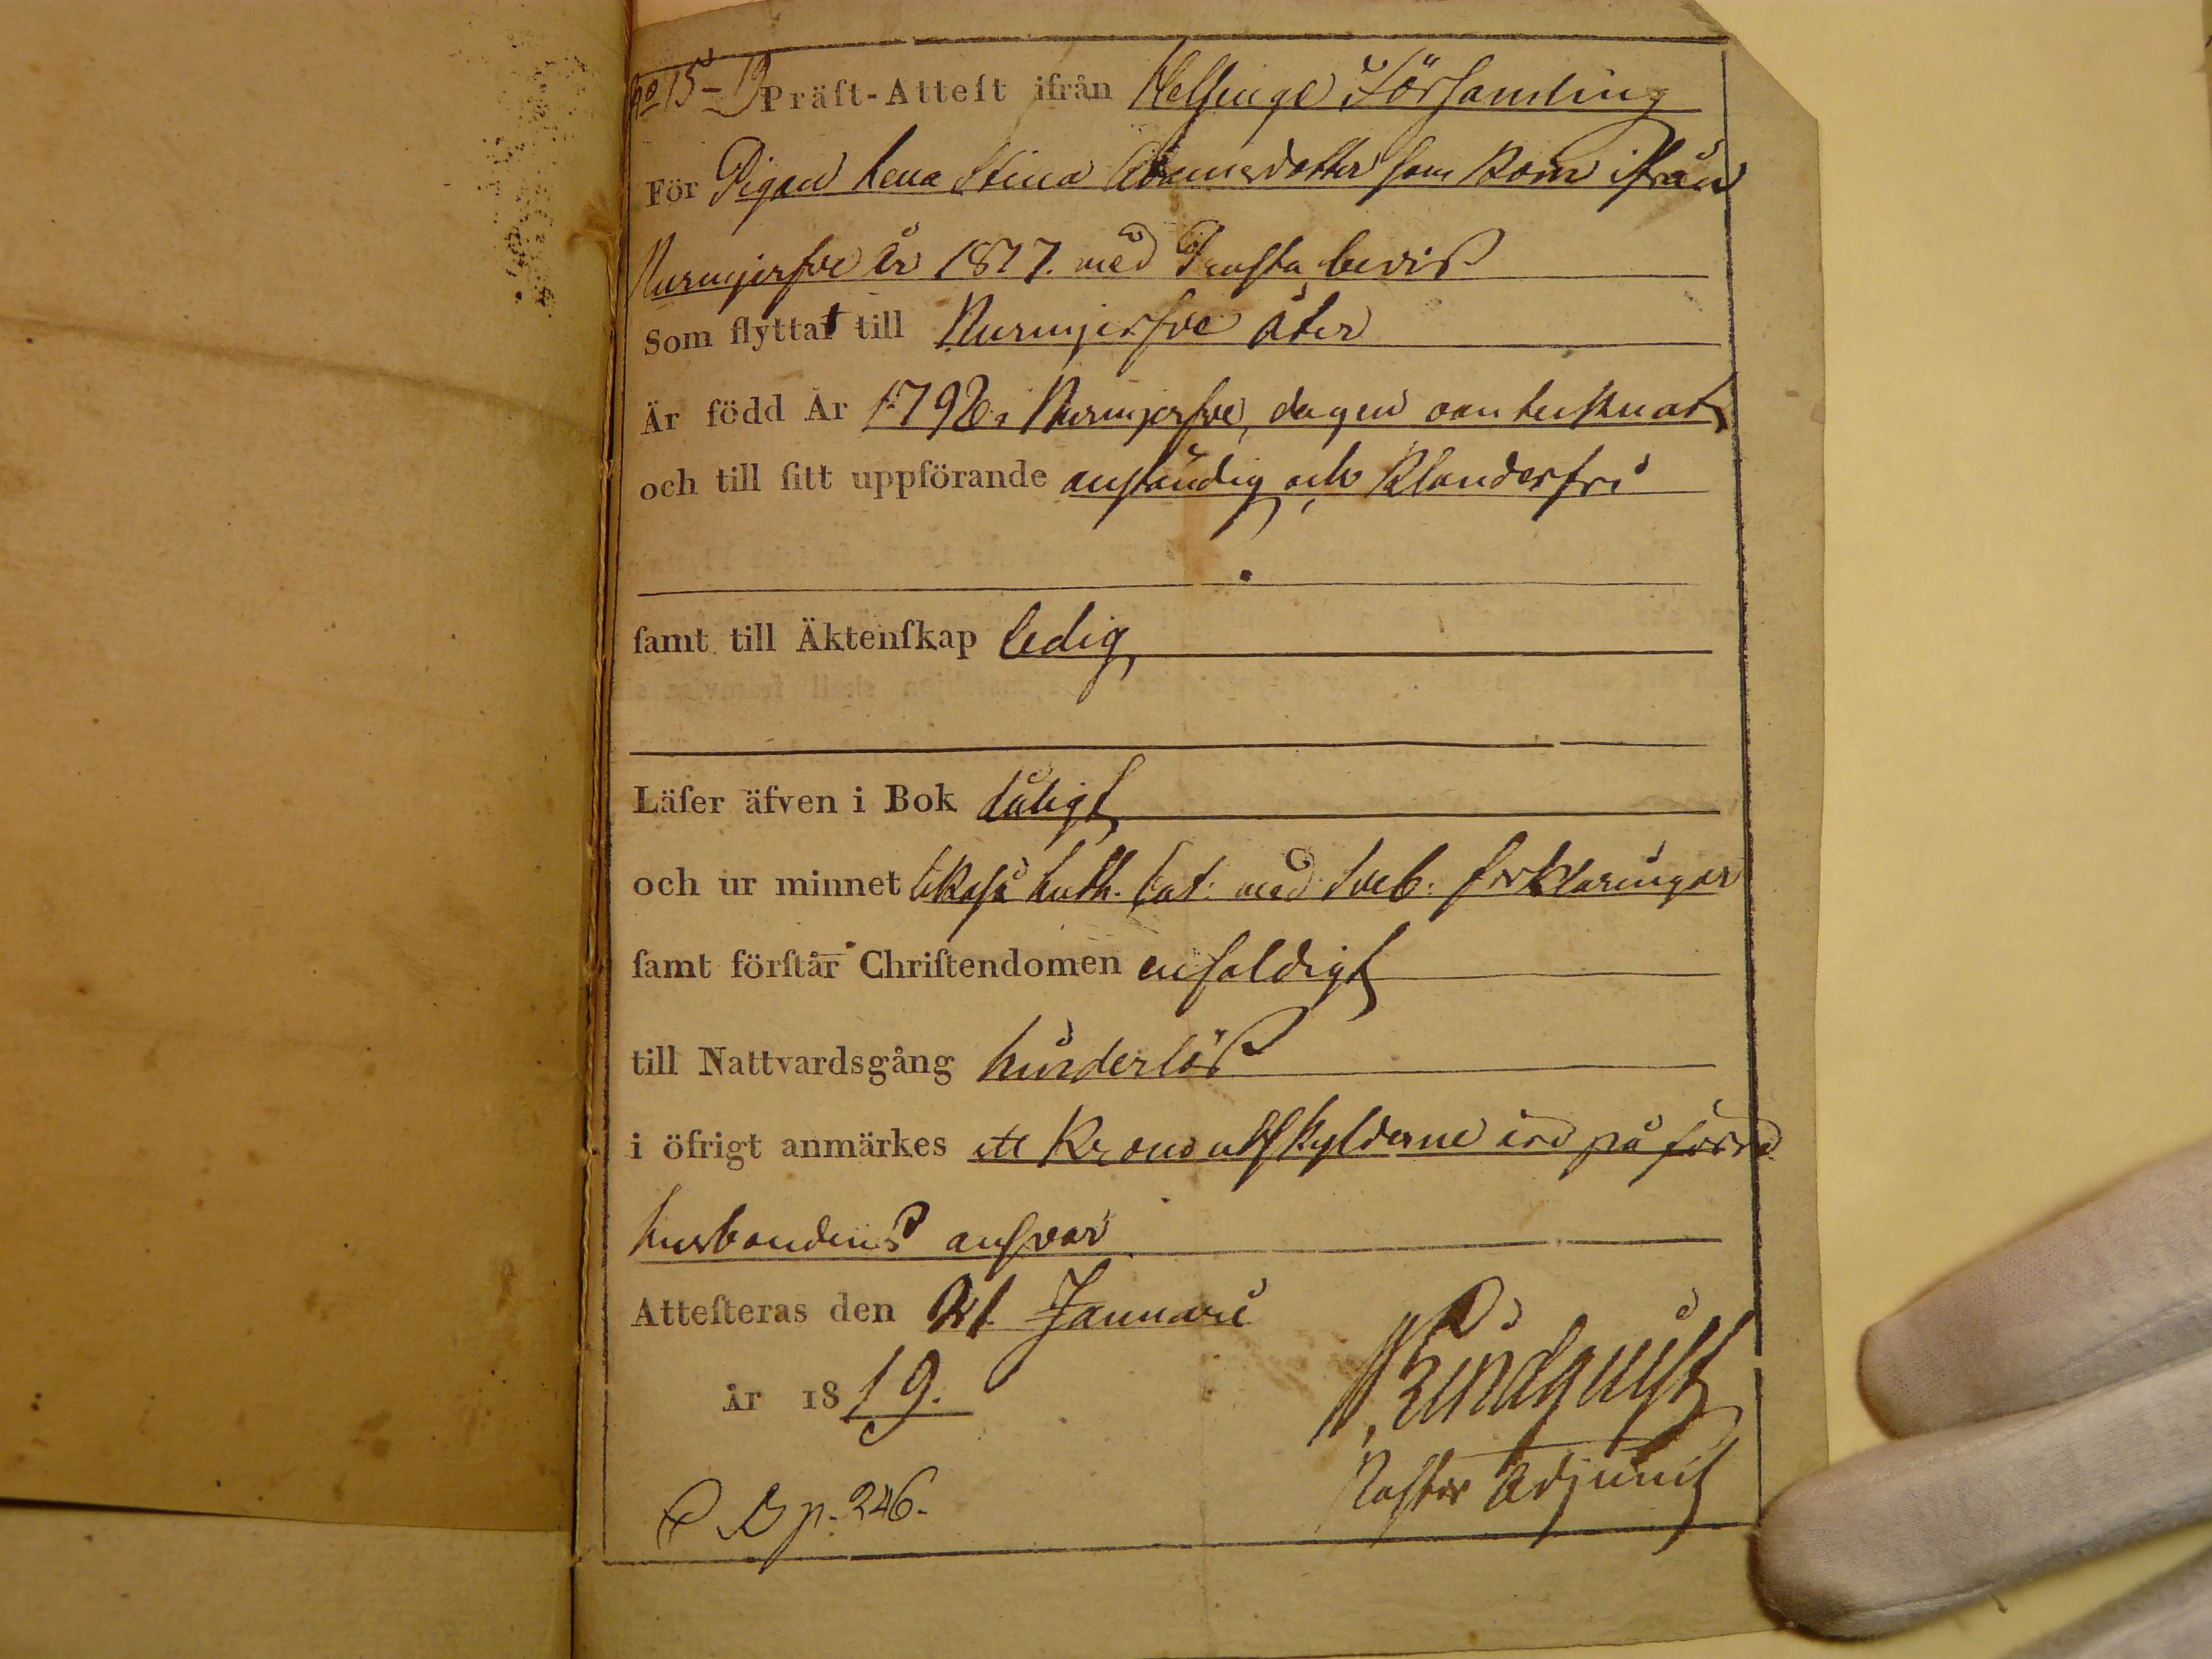 No 15-19 Präſt-Atteſt ifrån Helsinge Församling
För Pigan Lena Stina Adamsdotter som kom ifrån
Nurmjerfve år 1817. med Prästa beviß
Som flyttat till Nurmjerfve åter
Är född År 1792 i Nurmjerfve, dagen oantecknat
och till ſitt uppförande anständig och klanderfri
ſamt till Äktenſkap ledig,
Läſer äfven i Bok dåligt
och ur minnet likaså Luth. Cat. med Sveb. förklaringar
ſamt förſtår Chriſtendomen enfaldigt
till Nattvardsgång hinderlöß
i öfrigt anmärkes att Krono utskylderne äro på förra
husbondens ansvar
Atteſteras den 21 Januari
år 1819. Lindquist
Pastors Adjunct
p. 246.